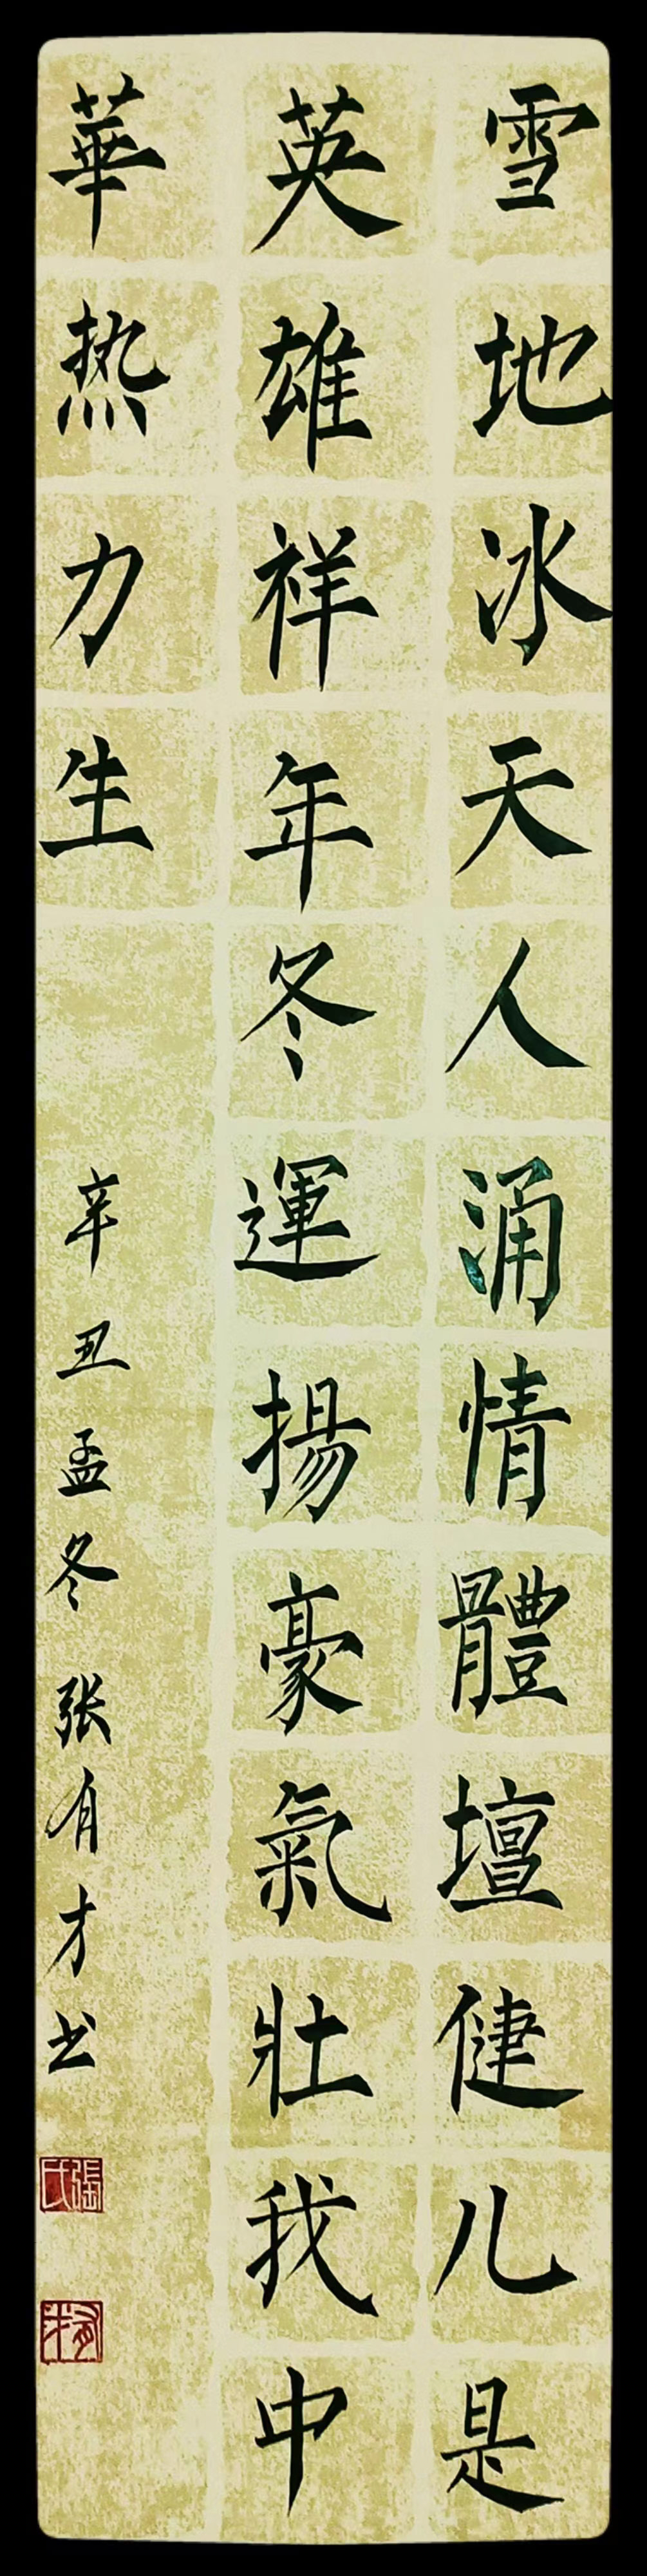 雪地冰天人涌情體壇健儿是
英雄祥年冬運揚豪氣壯我中
華热力生
辛丑孟冬张有才书
張氏
有才